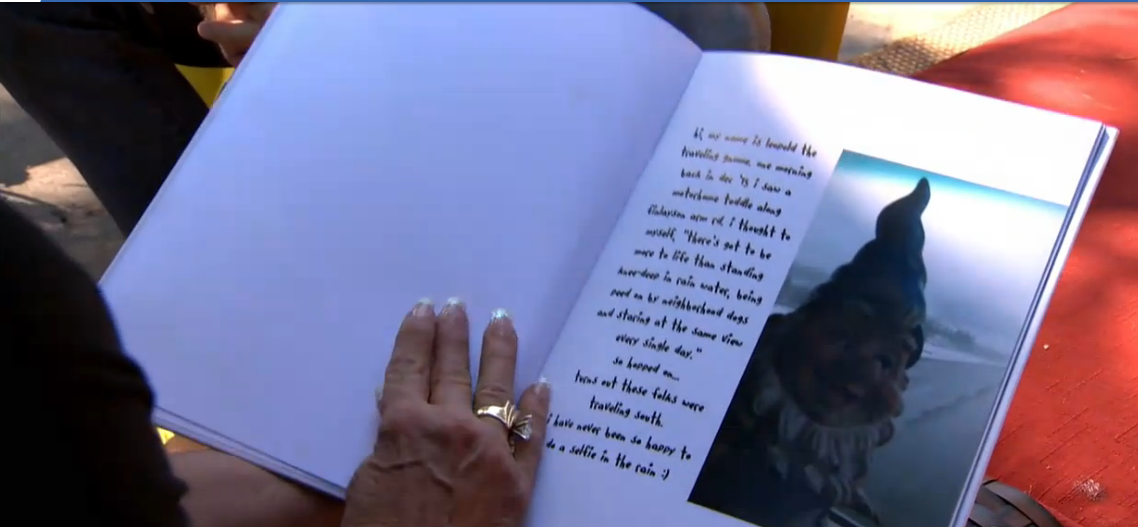 hi, my name is leopold the
traveling gnome. one morning
back in dec '15 i saw a
motorhome toddle along
finlayson arm rd. i thought to
myself, "there's got to be
more to life than standing
knee-deep in rain water, being
peed on by neighborhood dogs
and staring at the same view
every single day."
so hopped on...
turns out these folks were
traveling south.
i have never been so happy to
do a selfie in the rain :)